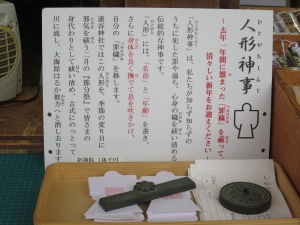 人形神事
ひとがたしんじ
去年一年間に溜まった『罪穢』を祓って、
清々しい新年をお迎えください
『人形神事』は、私たちが知らず知らずの
うちに犯した罪や過ち、心身の穢を祓い清める
伝統的な神事です。
『人形』には『名前』と『年齢』を書き、
さらに身体を良く撫でて息を吹きかけ、
自分の『罪穢』を移します。
速谷神社ではこの人形を、季節の変り目に
邪気を祓う二月の『節分祭』で皆さまの
身代わりとしてお祓い清め、古式にのっとって
川に流し、大海原はるか彼方へと消し去ります